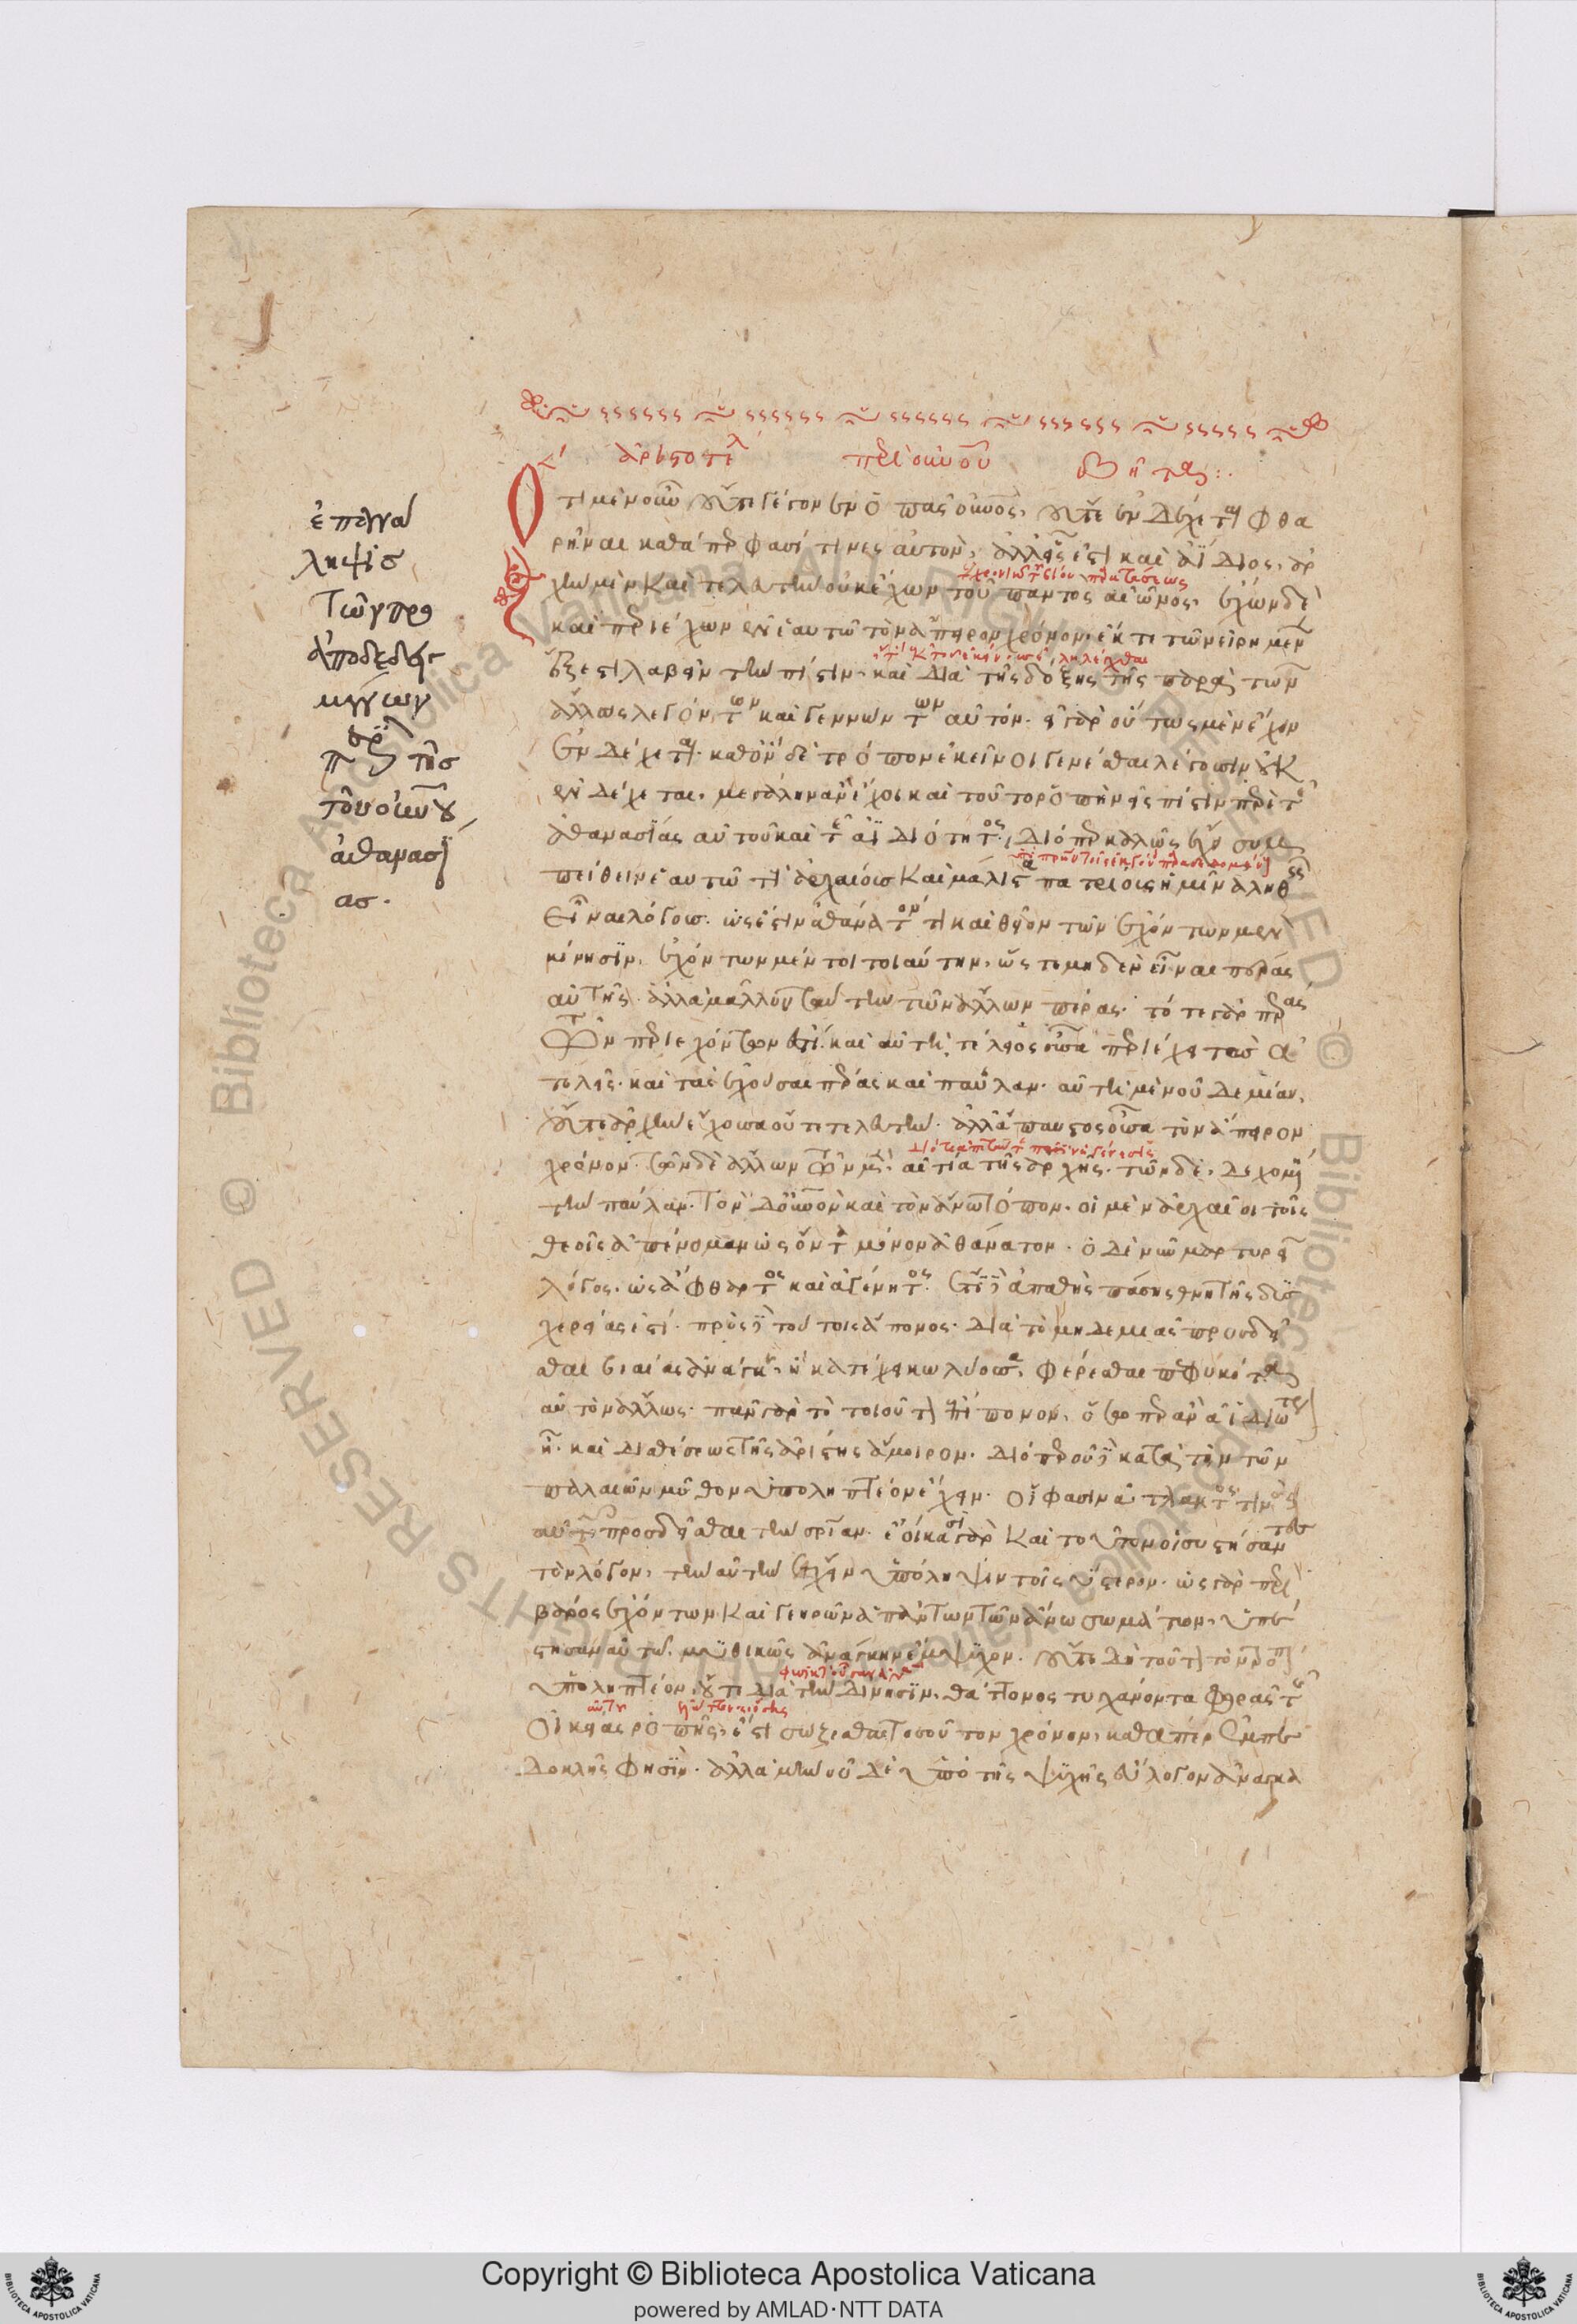 ἀριστοτελ περὶ οὐνοῦ
Ὅτι μὲν οὖν οὔτε γέγονεν ὁ πᾶς οὐνος, οὔτε ἐνδέχεται φθα
ρῆναι καθάπερ φασί τινες αὐτὸν, ἀλλ' ἔστι καὶ ἀΐδιος, ἀρ
χὴν μὲν καὶ τελευτὴν οὐκ ἔχων τοῦ παντὸς αἰῶνος, ἔχων δὲ
καὶ περιέχων ἐν ἑαυτῶ τὸν ἄπειρον χρόνον, ἔκ τε τῶν εἰρημένων
ἔξεστι λαβεῖν τὴν πίστιν, καὶ διὰ τῆς δόξης τῆς παρὰ τῶν
ἄλλως λεγόντων καὶ γεννώντων αὐτόν. εἰ γὰρ οὕτως μὲν ἔχειν
ἐνδέχεται. καθ' ὃν δὲ τρόπον ἐκεῖνοι γενέσθαι λέγουσιν οὐκ
ἐνδέχεται, μεγάλην ἂν ἔχοι καὶ τοῦτο ῥοπὴν εἰς πίστιν περὶ τῆς
ἀθανασίας αὐτοῦ καὶ τῆς ἀϊδιότητος. διόπερ καλῶς ἔχει συμ
πείθειν ἑαυτὸν τοὺς ἀρχαίους καὶ μάλιστα πατρίους ἡμῶν ἀληθεῖς
εἶναι λόγους. ὡς ἔστιν ἀθάνατόν τι καὶ θεῖον τῶν ἐχόντων μὲν
κίνησιν, ἐχόντων μέντοι τοιαύτην, ὥστε μηδὲν εἶναι πέρας
αὐτῆς. ἀλλὰ μᾶλλον ταύτην τῶν ἄλλων πέρας. τό τε γὰρ πέρας
τῶν περιεχόντων ἐστί. καὶ αὕτη τέλειος οὖσα περιέχει τὰς ἀ
τελεῖς. καὶ τὰς ἐχούσας πέρας καὶ παῦλαν. αὐτὴ μὲν οὐδεμίαν,
οὔτε ἀρχὴν ἔχουσα οὔτε τελευτὴν. ἀλλ' ἄπαυστος οὖσα τὸν ἄπειρον
χρόνον. τῶν δὲ ἄλλων τῶν μὲν αἰτία τῆς ἀρχῆς. τῶν δὲ, δεχομένη
τὴν παῦλαν. τὸν δ' οὐνον καὶ τὸν ἄνω τόπον. οἱ μὲν ἀρχαῖοι τοῖς
θεοῖς ἀπένειμαν ὡς ὄντα μόνον ἀθάνατον. ὁ δὲ νῦν μαρτυρεῖ
λόγος. ὡς ἄφθαρτος καὶ ἀγένητος. ἔτι δ' ἀπαθὴς πάσης θνητῆς δυσ
χερείας ἐστί. πρὸς δὲ τούτοις ἄπονος. διὰ τὸ μηδεμιᾶς προσδεῖ
σθαι βιαίας ἀνάγκης, ἢ κατέχει κωλύουσα, φέρεσθαι πεφυκότα
αὐτὸν ἄλλως. πᾶν γὰρ τὸ τοιοῦτον ἐπίπονον, ὅσῳ περ ἂν ἀϊδιώτερον
ἦ. καὶ διαθέσεως τῆς ἀρίστης ἄμοιρον. διόπερ οὔτε κατὰ τὸν τῶν
παλαιῶν μῦθον ὑποληπτέον ἔχειν. οἵ φασιν ἄτλαντός τινος
αὐτῶ προσδεῖσθαι τὴν σρίαν. ἐοίκασι γὰρ καὶ τοῦτον οἱ συστήσαντες
τὸν λόγον, τὴν αὐτὴν ἔχειν ὑπόληψιν τοῖς ὕστερον. ὡς γὰρ περὶ
βάρος ἐχόντων καὶ γεηρῶν ἁπάντων τῶν ἄνω σωμάτων, ὑπέ
στησαν αὐτῶ μυθικῶς ἀνάγκην ἔμψυχον. οὔτε δὴ τοῦτον τὸν τρόπον
ὑποληπτέον. οὔτε διὰ τὴν δίνησιν, θάττονος τυγχάνοντα φορᾶς τῆς
οἰκείας ῥοπῆς, ἔτι σώζεσθαι τοσοῦτον χρόνον, καθάπερ ἐμπε
δοκλῆς φησίν. ἀλλὰ μὴν οὐδὲ ὑπὸ τῆς ψυχῆς εὔλογον ἀναγκα
ἐπανα
ληψις
τῶν προ
ἀποδεδειγ
μένων
περὶ τῆς
τοῦ οὐνου
ἀθανασί
ας.
Copyright © Biblioteca Apostolica Vaticana
powered by AMLAD·NTT DATA